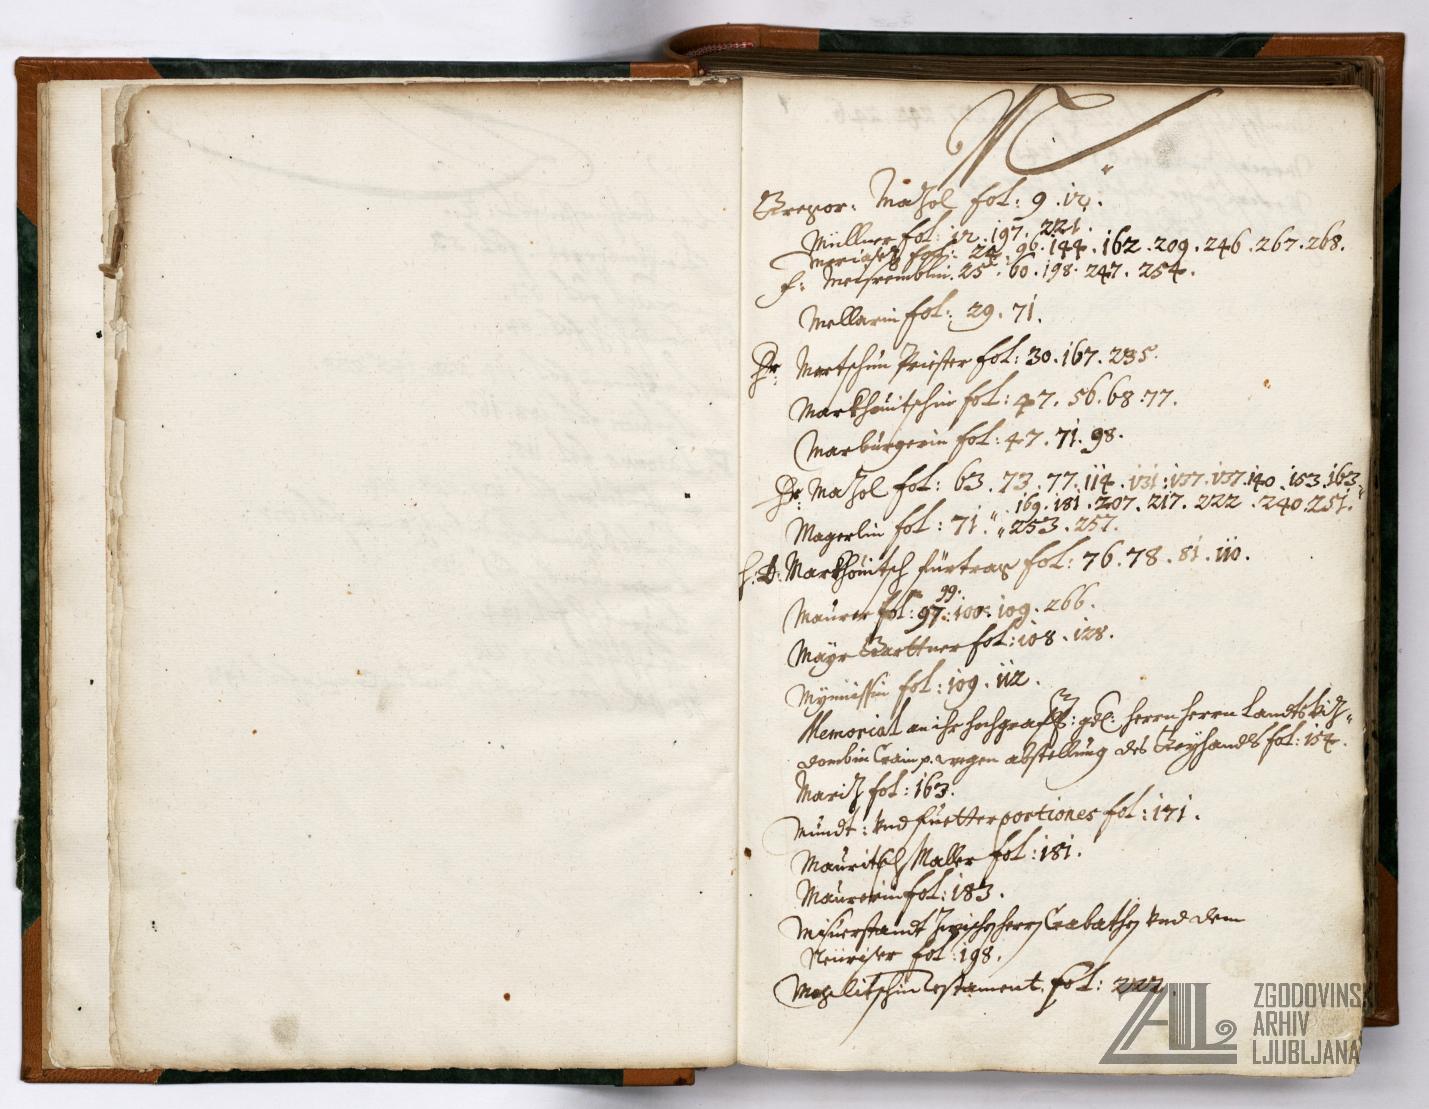 M
Gregor: Mazol fol: 9. 12.
Müllner fol: 12. 197. 221.
fol: 24. 96. 144. 162. 209. 246. 267. 268.
25. 60. 198. 247. 254.
Mellarin fol: 29. 71.
Hr: Martschin Priester fol: 30. 167. 235.
Markhouitschin fol: 47. 56. 68. 77.
Marburgerin fol: 47. 71. 98.
Hr: Mazol fol: 63. 73. 77. 114. 131. 137. 137. 140. 153. 163.
169. 181. 207. 217. 222. 240. 251.
Magerlin fol: 71. 253. 257.
Markhouitsch fürtrag fol: 76. 78. 81. 110.
99.
Maurer fol: 97. 100. 109. 266.
Mayr Garttner fol: 108. 128.
fol: 109. 112.
Memorial an ihr hochgräfl: gd: herrn herrn Landts Viz
dombin Crain p. wegen abstellung des fol: 154.
Mariz fol: 163.
Mundt: vnd fuetter portiones fol: 171.
Mauritsch Maller fol: 181.
Maurerin fol: 183.
Misuerstandt zwischen herrn Crabathen vnd dem
fol: 198.
Testament. fol: 222
ZAL
ZGODOVINSKI
ARHIV
LJUBLJANA